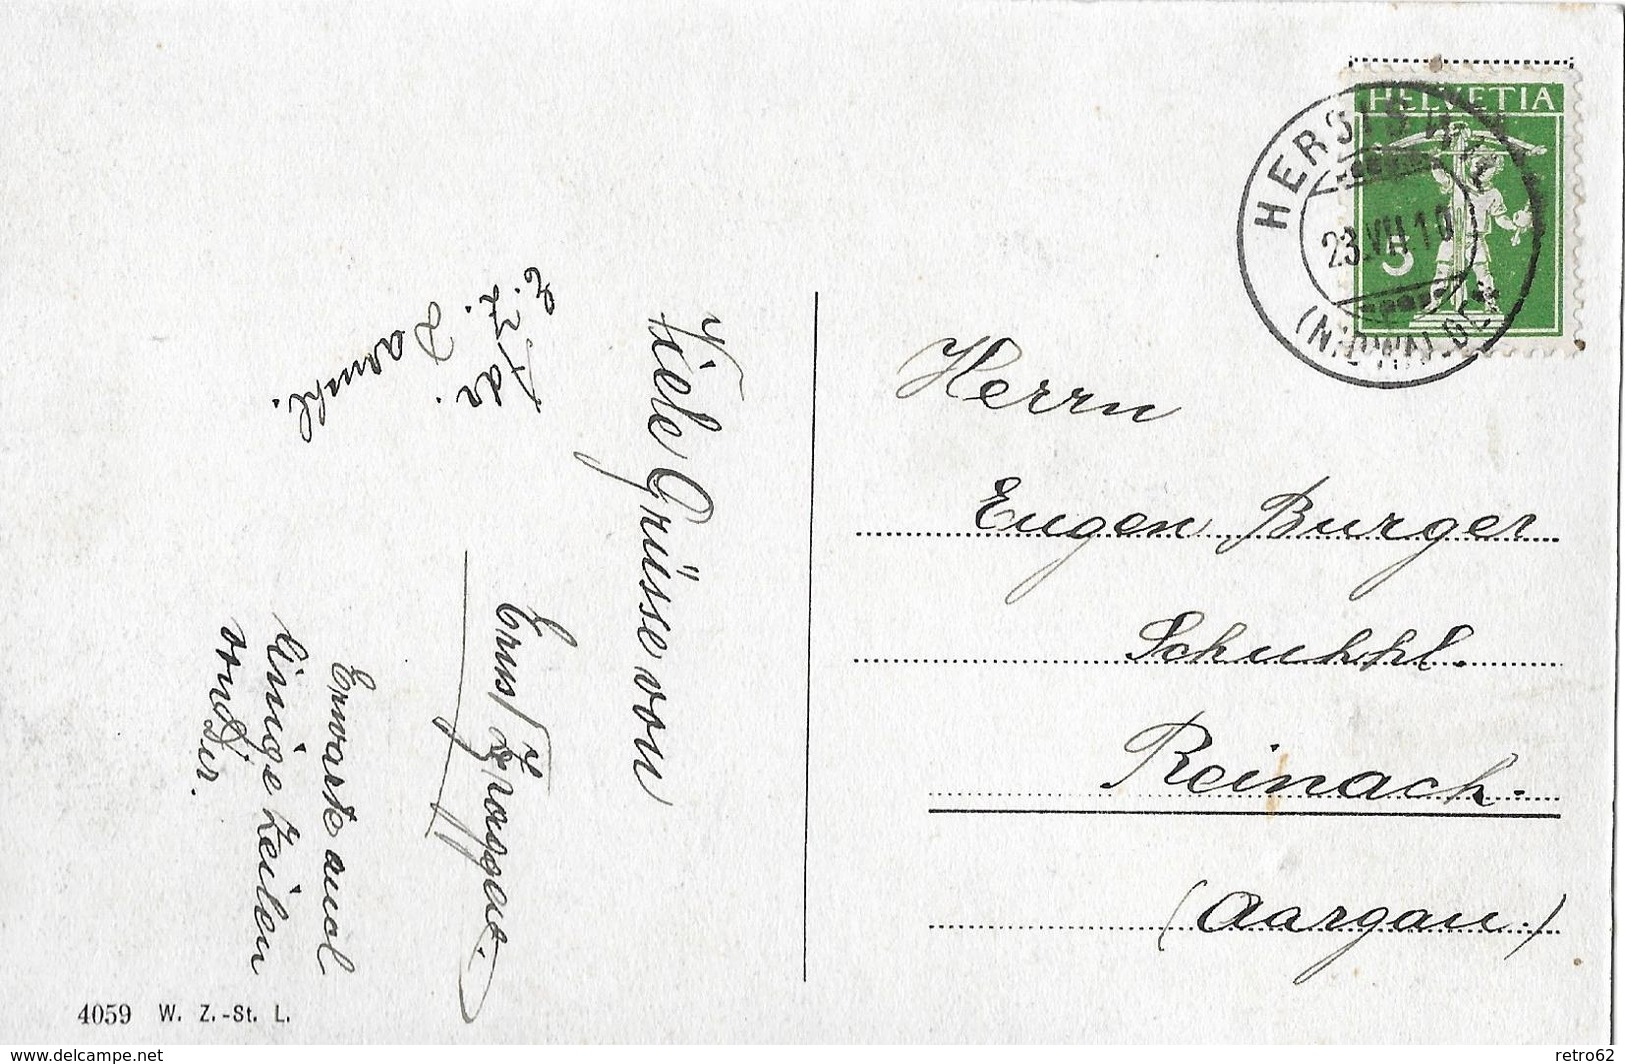 HELVETIA
5
HERGISWIL
23.VII.10
(NIDWALDEN)
Herrn
Eugen Burger
Schuhhl.
Reinach.
(Aargau.)
Viele Grüsse von
Ernst Zgraggen.
Erwarte auch
einige Zeilen
von Dir.
4059 W. Z.-St. L.
www.delcampe.net
retro62